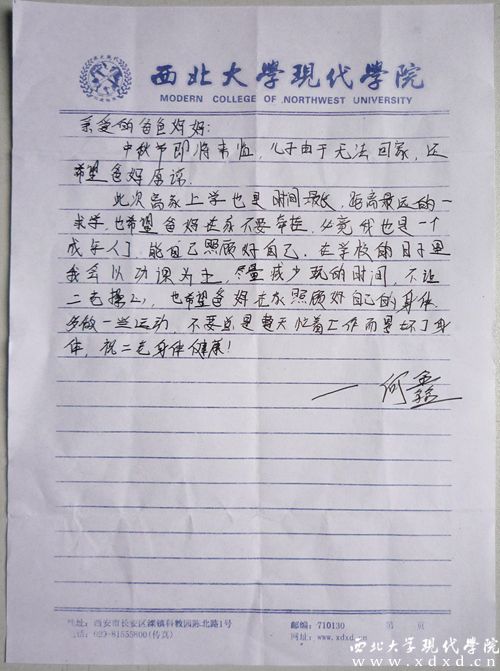 西北大学现代学院
MODERN COLLEGE OF NORTHWEST UNIVERSITY
亲爱的爸爸妈妈:
中秋节即将来临,儿子由于无法回家,还
希望爸妈原谅。
此次离家上学也是时间最长,距离最远的一
次求学,也希望爸妈在家不要牵挂,必竟我也是一个
成年人了,能自己照顾好自己。在学校的日子里
我会以功课为主,尽量减少玩的时间,不让
二老操心,也希望爸妈在家照顾好自己的身体,
多做一些运动,不要总是整天忙着工作而累坏了身
体,祝二老身体健康!
— 何鑫
地址:西安市长安区滦镇科教园陈北路1号
邮编:710130 第 页
电话:029-81555800(传真)
网址:www.xdxd.cn
西北大学现代学院
www.xdxd.cn